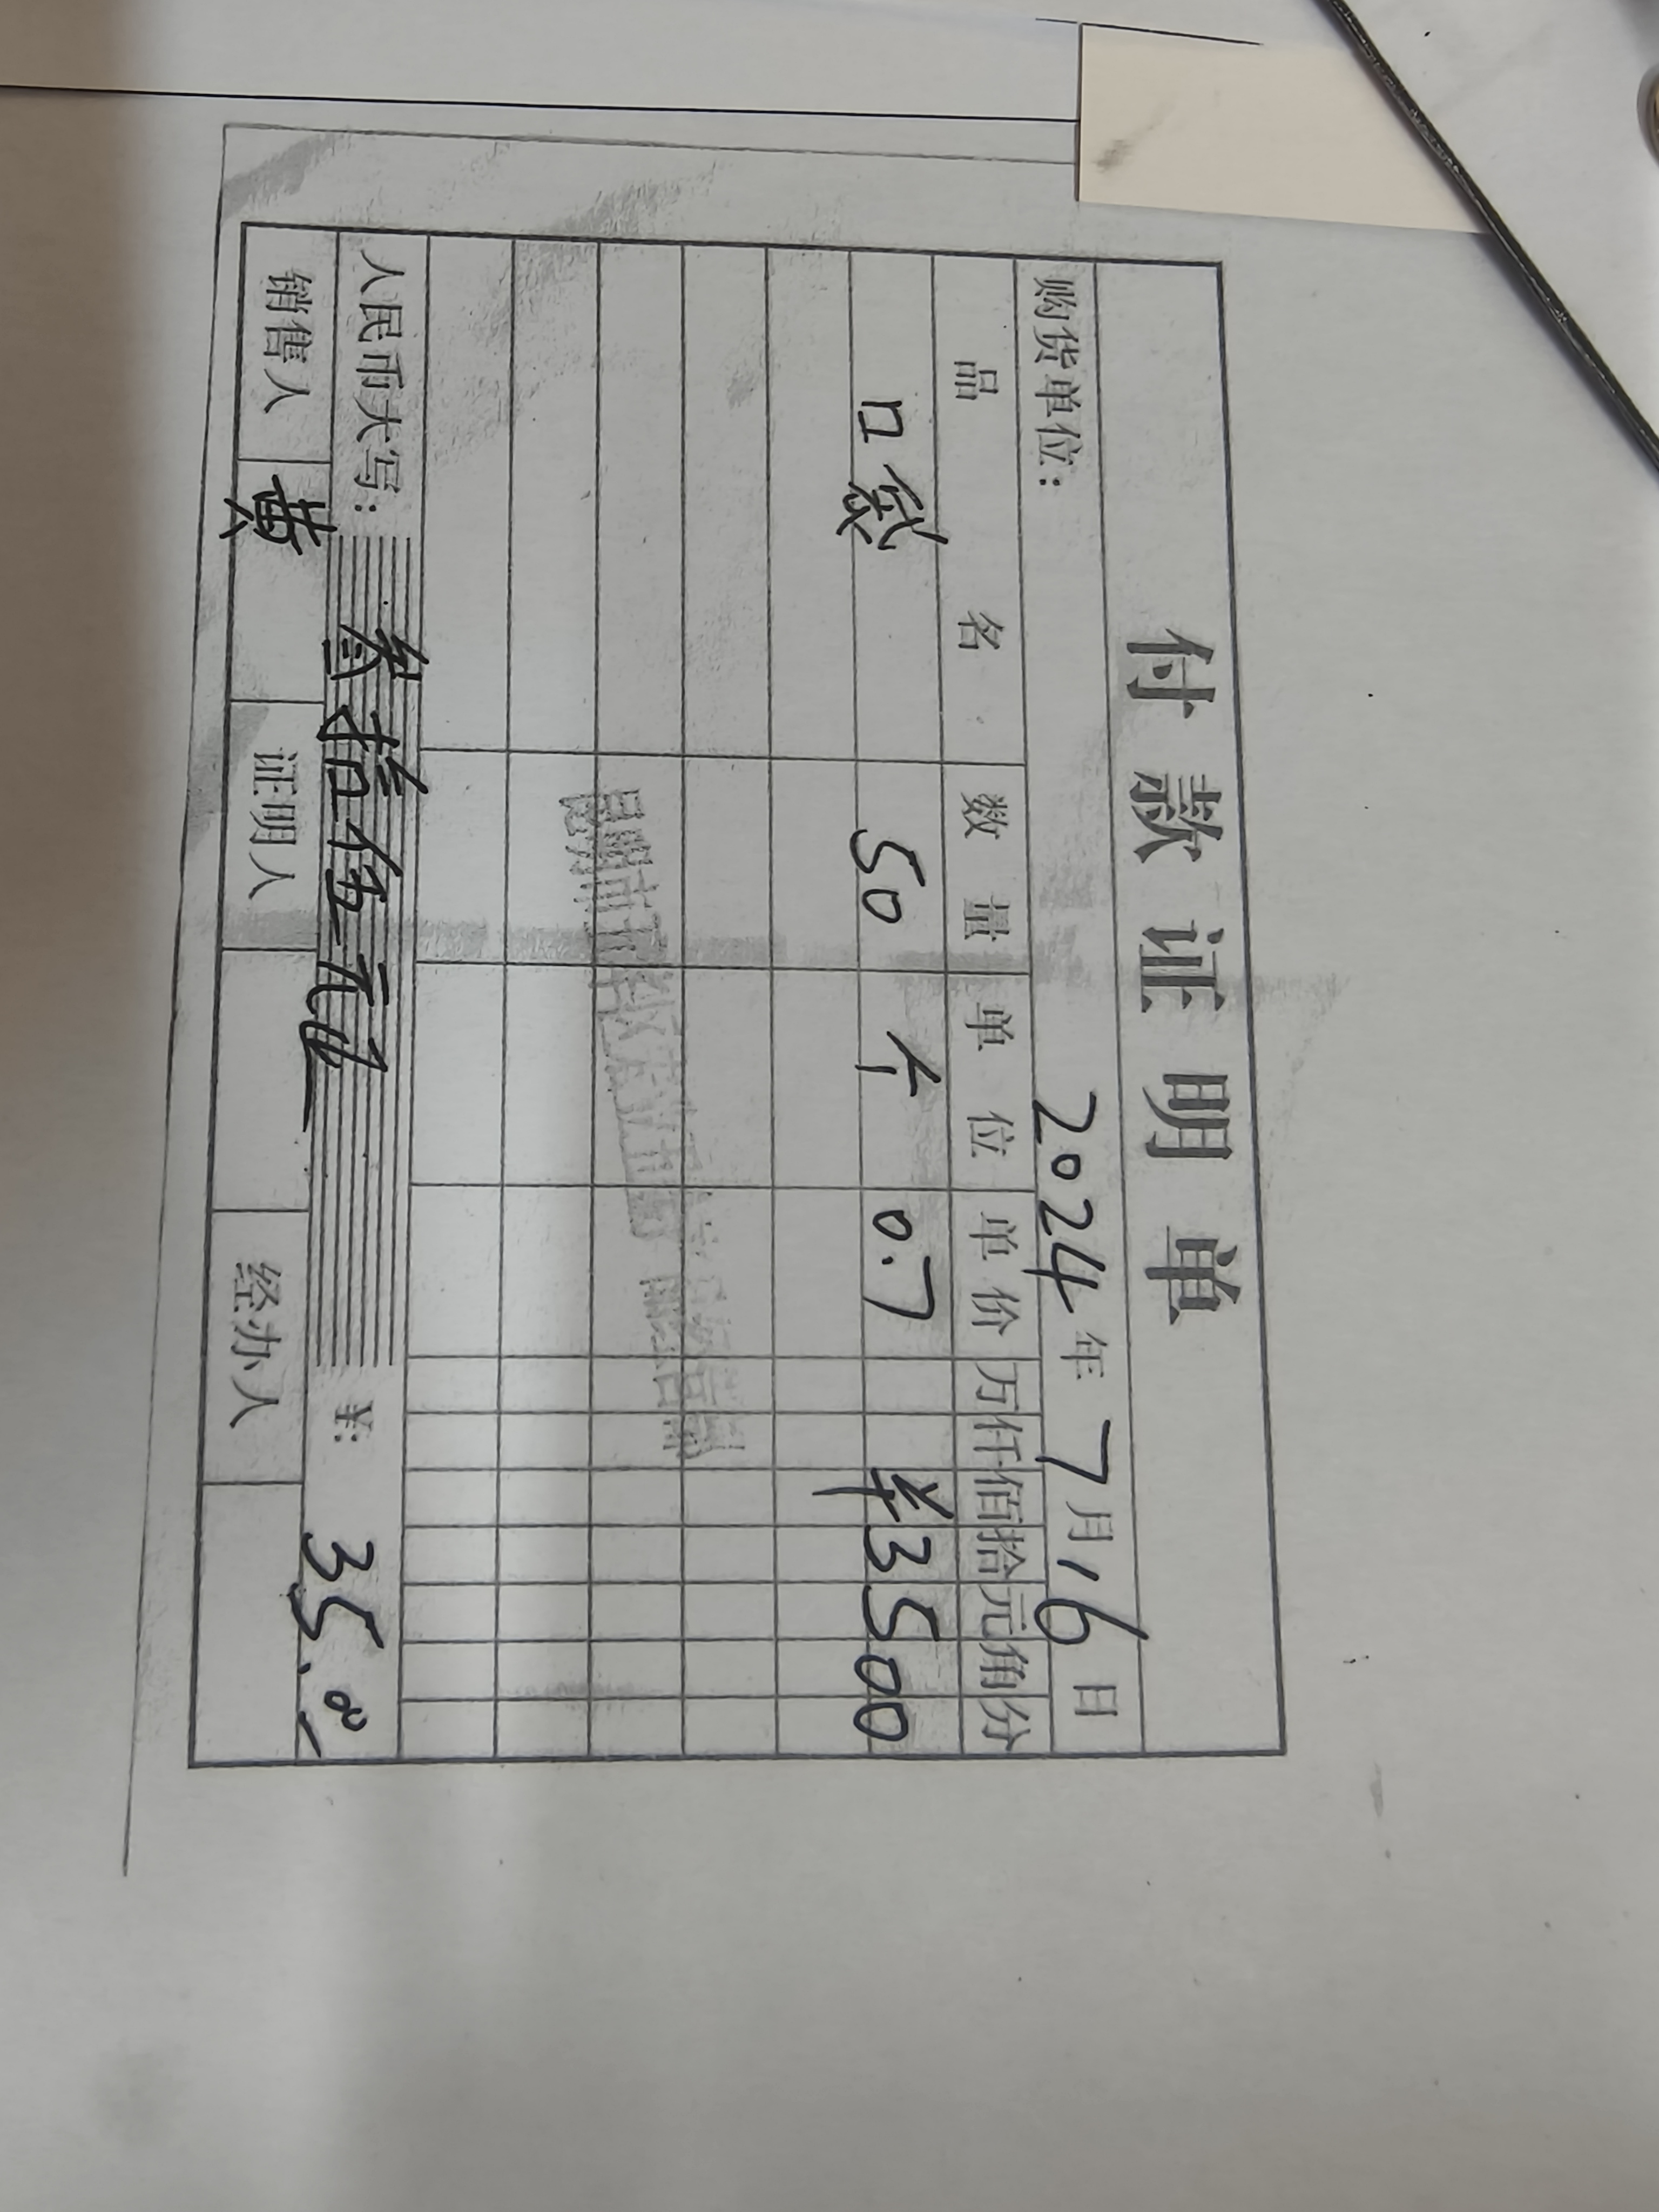 付款证明单
购货单位： 2024年7月16日
品名 数量 单位 单价 万仟佰拾元角分
口袋 50 个 0.7 ¥3500
人民币大写： 叁拾伍元正 ¥: 35.00
销售人 黄 证明人 经办人